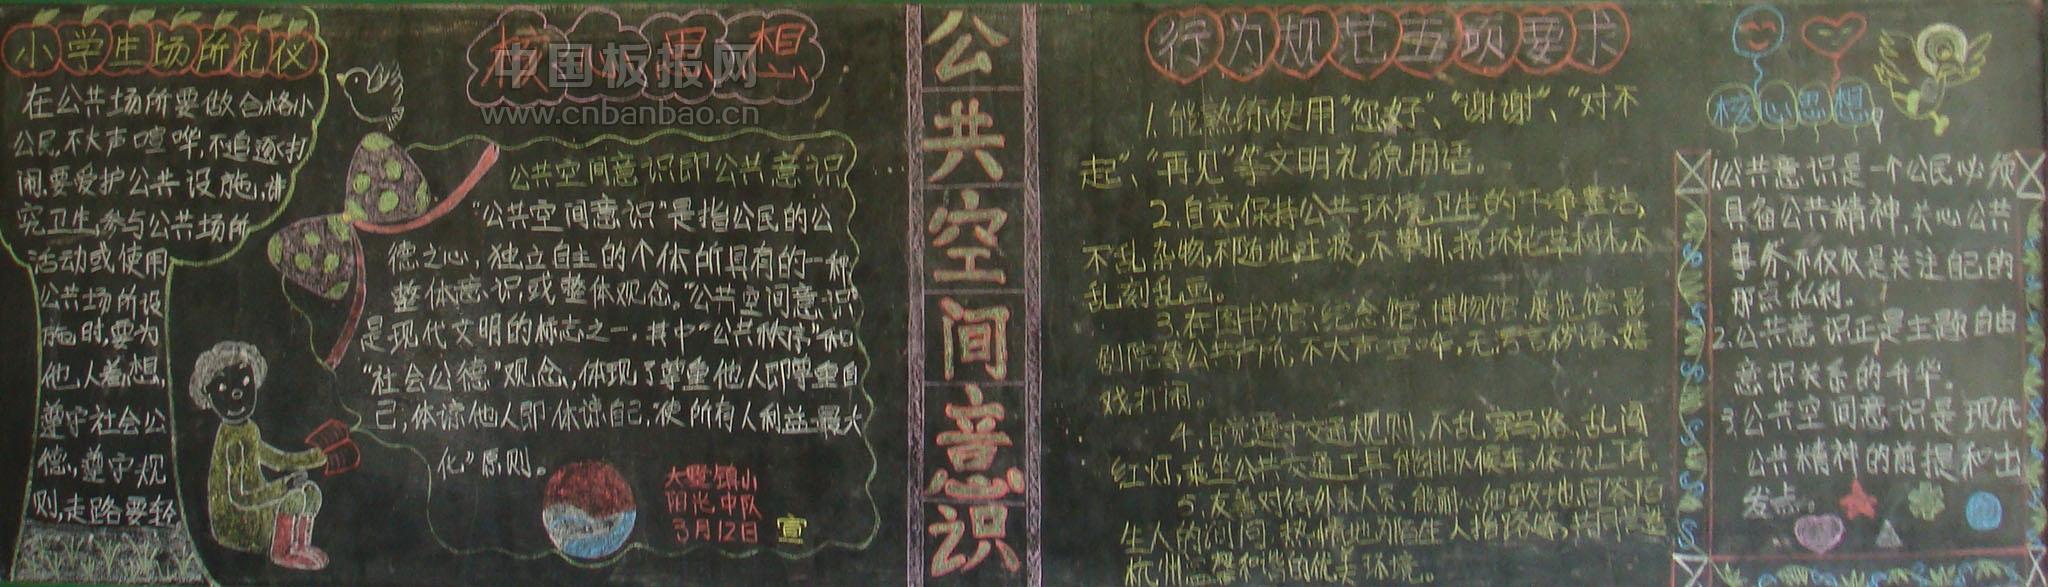 小学生场所礼仪
在公共场所要做合格小
公民,不大声喧哗,不追逐打
闹,要爱护公共设施,讲
究卫生,参与公共场所
活动或使用
公共场所设
施时,要为
他人着想,
遵守社会公
德,遵守规
则,走路要轻
核心思想
中国板报网
www.cnbanbao.cn
公共空间意识即公共意识
"公共空间意识"是指公民的公
德之心,独立自主的个体所具有的一种
整体意识,或整体观念。"公共空间意识"
是现代文明的标志之一,其中"公共秩序"和
"社会公德"观念,体现了尊重他人即尊重自
己,体谅他人即体谅自己,"使所有人利益最大
化"原则。
镇小
阳光中队
3月12日 宣
公共空间意识
行为规范五项要求
1.能熟练使用"您好"、"谢谢"、"对不
起"、"再见"等文明礼貌用语。
2.自觉保持公共环境卫生的干净整洁,
不乱杂物,不随地吐痰,不攀折、损坏花草树木,不
乱刻乱画。
3.在图书馆、纪念馆、博物馆、展览馆、影
剧院等公共场所,不大声喧哗,无污言秽语、嬉
戏打闹。
4.自觉遵守交通规则,不乱穿马路、乱闯
红灯,乘坐公共交通工具能排队候车,依次上下。
5.友善对待外来人员,能耐心细致地回答陌
生人的问询,热情地为陌生人指路
杭州温馨和谐的优美环境。
核心思想
1.公共意识是一个公民必须
具备公共精神,关心公共
事务,不仅仅是关注自己的
私利。
2.公共意识正是主题自由
意识关系的升华。
3.公共空间意识是现代
公共精神的前提和出
发点。